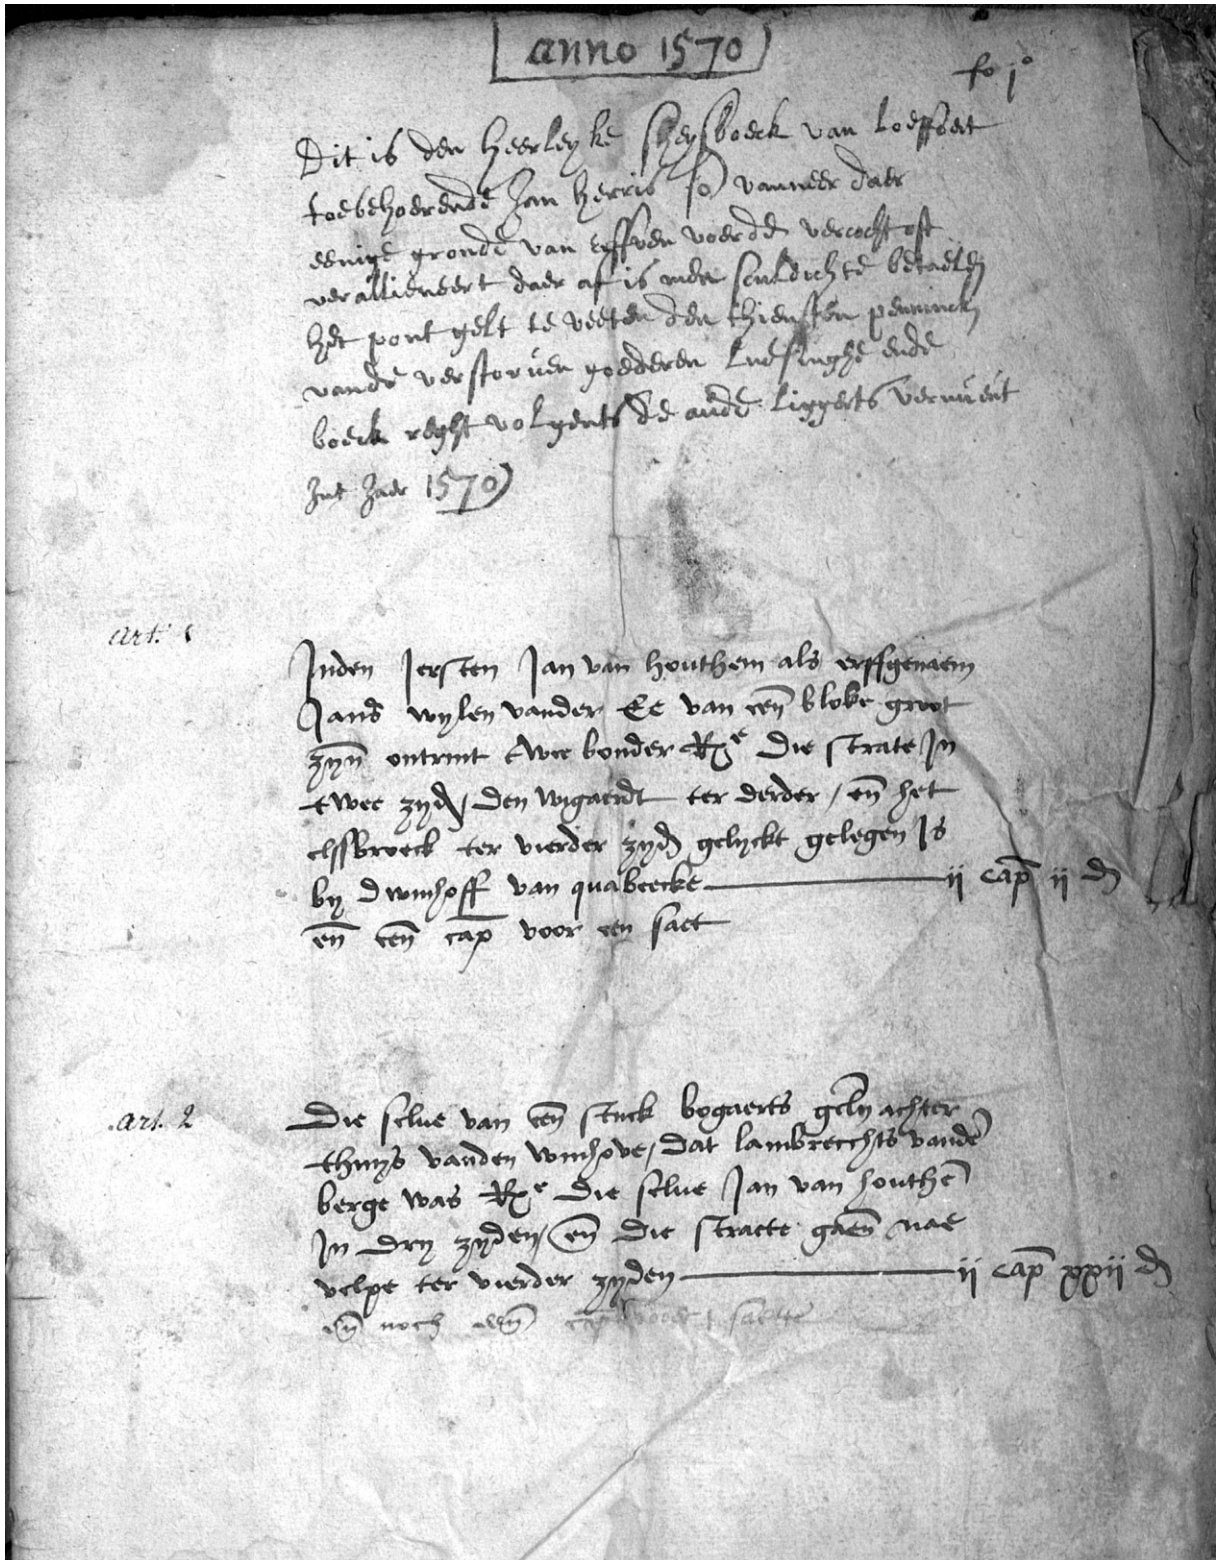 anno 1570
fo j°
Dit is den heerleyke cheysboeck van loeffvelt
toebehoerende Jan herris so vanneer daer
eenige gronde van erffven voerde vercocht oft
verallieneert daer af is men sculdich te betaelen
het pont gelt te weeten den thiensten penninck
vande verstorven goederen ende
boeck reght volgents de aude liggerts vernuewt
Int Jaer 1570
art. 1
Inden Jersten Jan van houthem als erffgenaem
Jans wylen vander Ee van eeñ bloke groot
zyñ ontrint twee bonder Rxe Die strate In
twee zyd, den wigaerdt ter derder, eñ het
elssbroeck ter vierder zyd gelyckt gelegen Is
by dwinhoff van quabeecke ij cap ij d
eñ eeñ cap voor een saet
art. 2
Die selue van eeñ stuck bogaerts geln achter
thuys vanden winhove, dat lambrecchts vandē
berge was Rxe Die selue Jan van houthē
In dry zyden, eñ die straete gaeñ nae
velpe ter vierder zyden ij cap xxij d
eñ noch eeñ cap voor